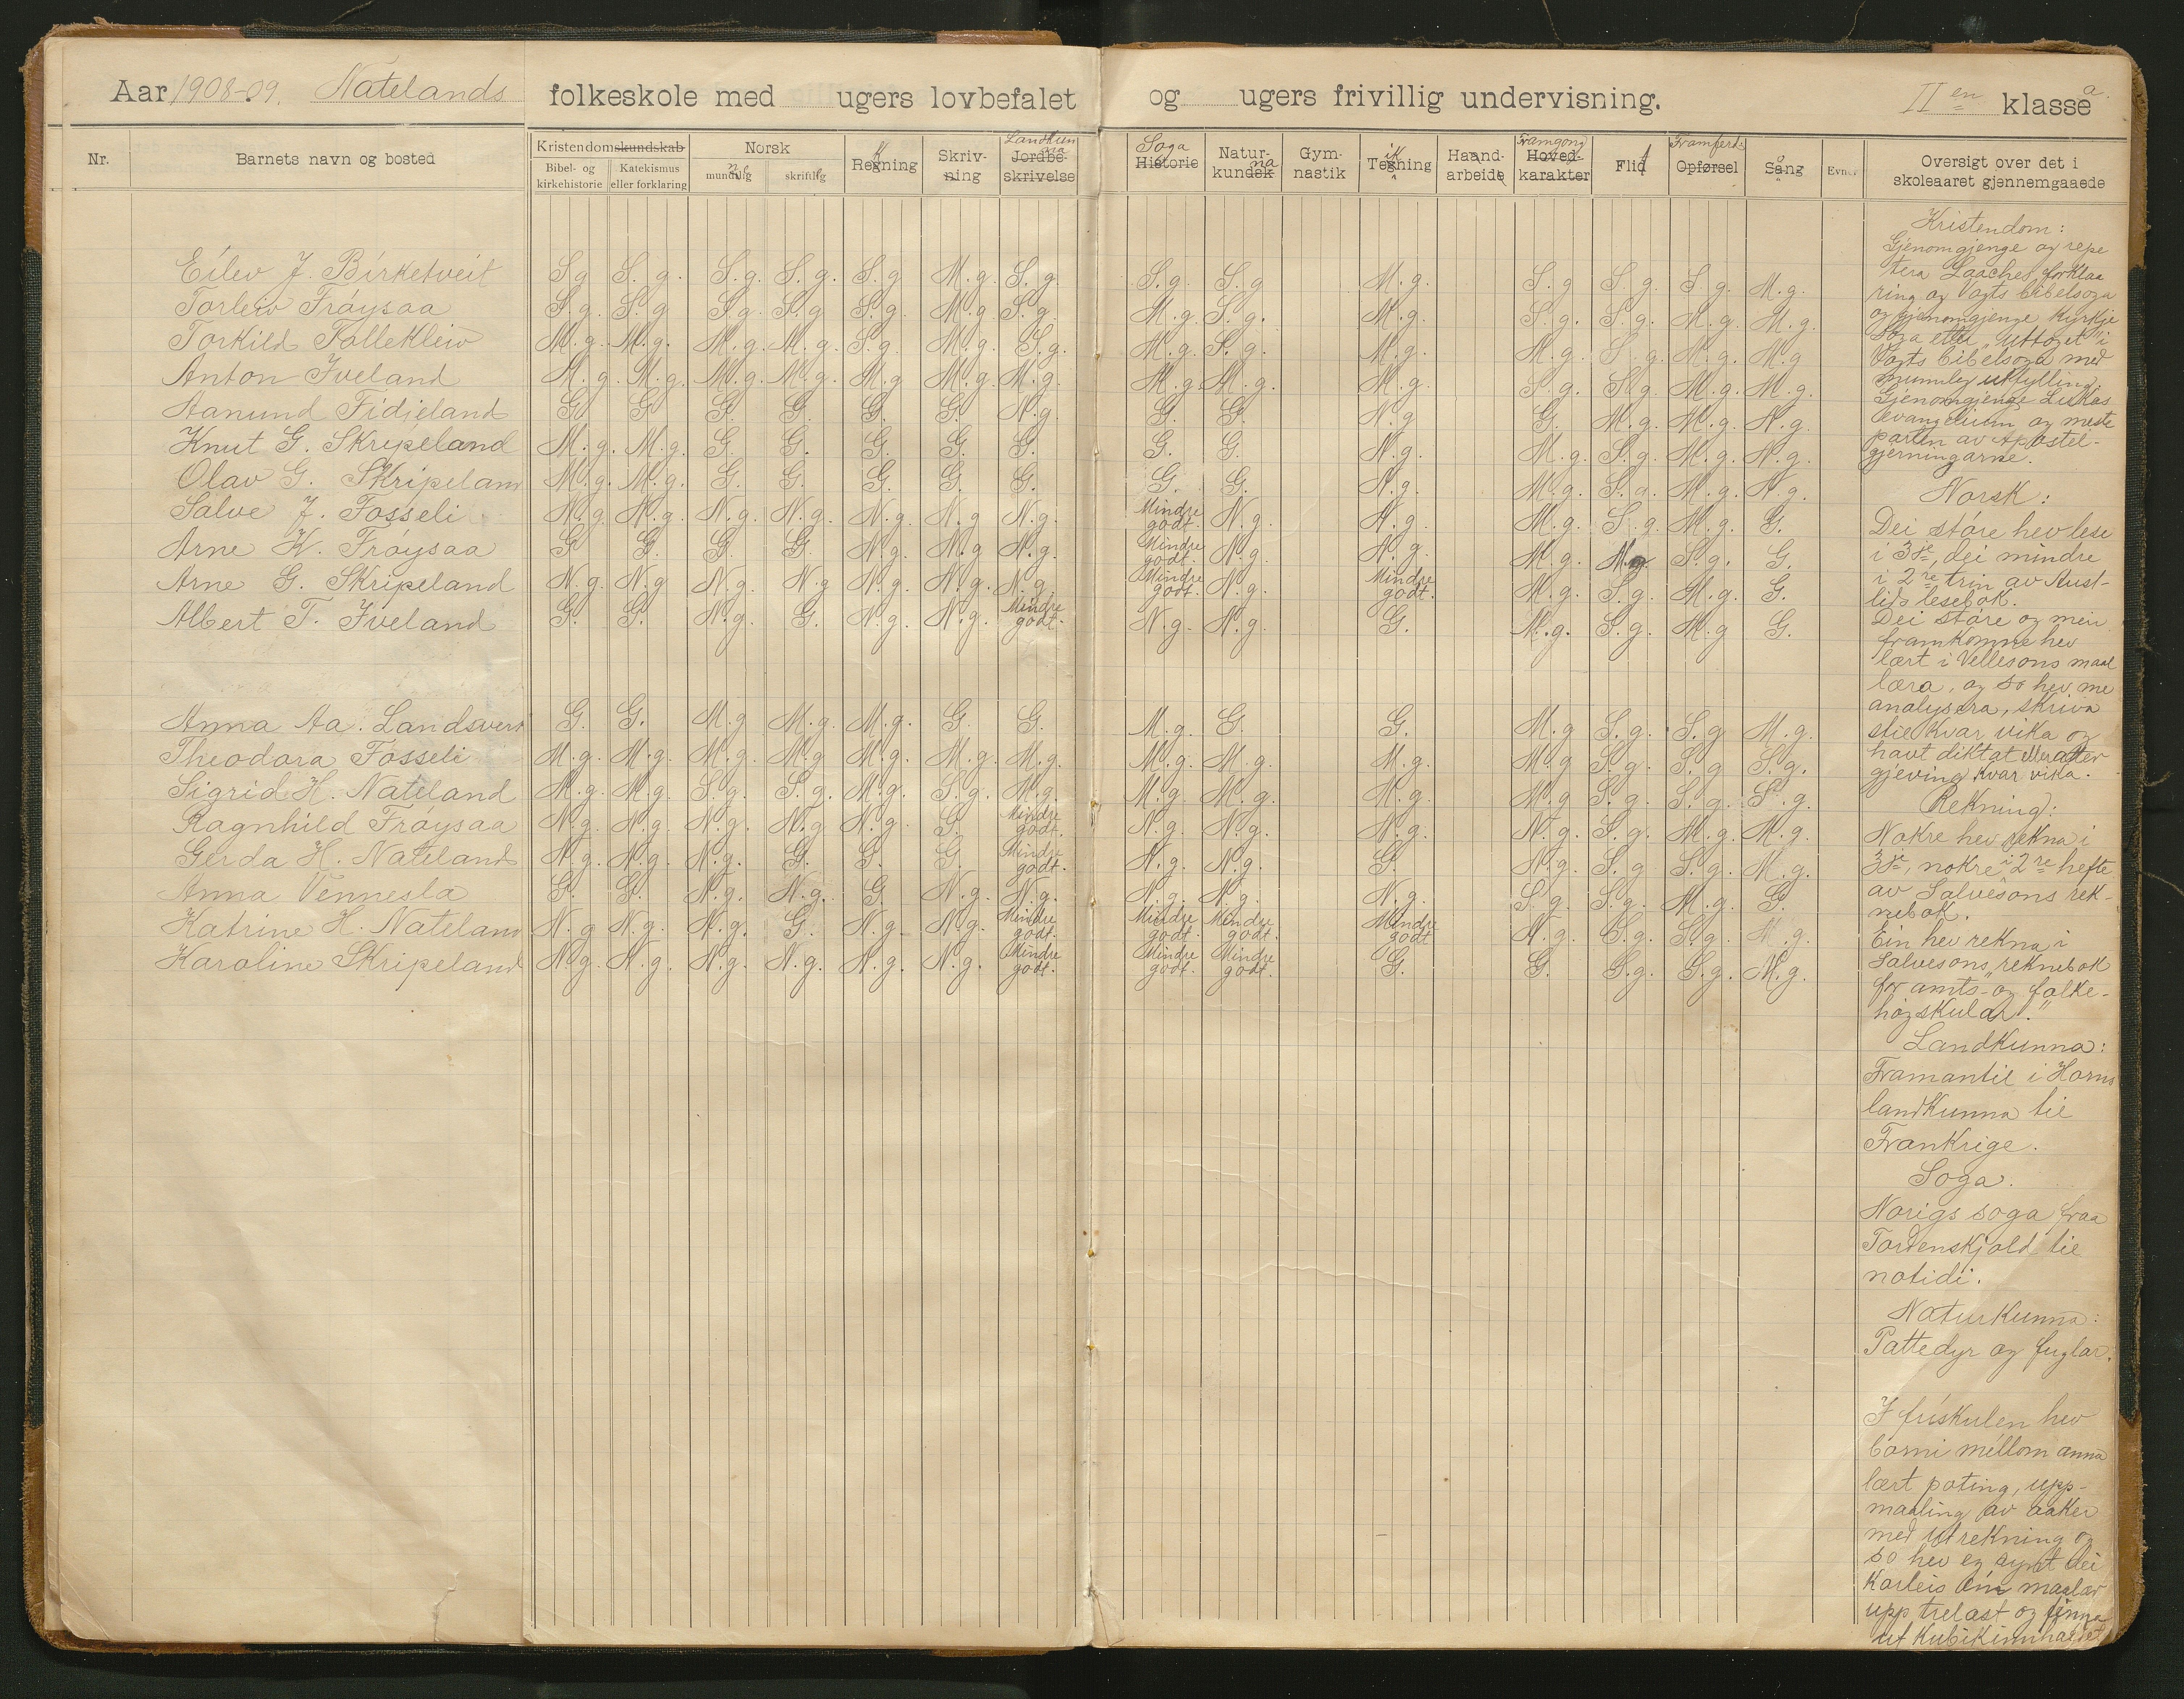 Aar 1908-09. Natelands folkeskole med ugers lovbefalet og ugers frivillig undervisning. II en klasse a.
Nr. Barnets navn og bosted
Kristendomskundskab
Bibel- og kirkehistorie
Katekismus eller forklaring
Norsk
mundlig
skriftlig
Regning
Skriv-
ning
Landkun
na
Jordbe-
skrivelse
Soga
Historie
Natur-
kundsk na
Gym-
nastik
Tegning
Haand-
arbeide
Framgong
Hoved-
karakter
Flid
Framferd
Opførsel
Sang
Evner
Oversigt over det i
skoleaaret gjennemgaaede
Eilev J. Birketveit S.g S. g. S.g. S. g. S.g M.g. S.g. S.g. S.g M.g. S.g S.g. S.g. M.g.
Torleiv Frøysaa S.g. S.g S.g. S.g S.g. M.g. S.g. M.g. S.g. M.g. S.g. S.g. M.g. M.g.
Torkild Follekleiv M.g. M.g. M.g. M.g. S.g. M.g. S.g. M.g. S.g. M.g. M.g. S.g. M.g. M.g
Anton Iveland M.g. M.g. M.g. M.g. M.g M.g. M.g. M.g. M.g. M.g. S.g. S.g M.g. M.g.
Aanund Fidjeland G. G G G. G. G. N.g. G. G. N.g G. M.g. M.g. N.g.
Knut G. Skripeland M.g. M.g. G. G. G. G. G. G. G. N.g. M.g. S.g. M.g. N.g.
Olav G. Skripeland M.g. M.g. G. G. G. G. G. G. G. N.g. M.g. S.g. M.g. N.g.
Salve J. Fosseli N.g. N.g. N.g. N.g. N.g. N.g N.g. Mindre godt. N.g. N.g. M.g. S.g. M.g. G.
Arne K. Frøysaa G G. G. G. N.g. N.g N.g. Mindre godt. N.g. N.g. M.g. M.g S.g. G.
Arne G. Skripeland N.g. N.g N.g. N.g N.g. N.g. N.g. Mindre godt. N.g. Mindre godt. M.g. S.g. M.g. G.
Albert T. Iveland G. G. N.g. G. N.g. N.g. Mindre godt. N.g. N.g. G. M.g. S.g. M.g G.
Anna Aa. Landsverk G. G. M.g M.g. M.g. G. G. M.g. G. G. M.g S.g. S.g M.g.
Theodora Fosseli M.g. M.g. M.g. M.g M.g. M.g. M.g. M.g. M.g. M.g. M.g S.g. S.g S.g.
Sigrid H. Nateland M.g. M.g. S.g. S.g. M.g. S.g. M.g. M.g. M.g. M.g. M.g S.g. S.g. S.g.
Ragnhild Frøysaa N.g. N.g. N.g. N.g N.g. G. Mindre godt. N.g. N.g. N.g. N.g. S.g. M.g. M.g.
Gerda H. Nateland N.g. N.g. N.g. G. G. G. Mindre godt. N.g. N.g. G. N.g. S.g S.g. M.g.
Anna Vennesla G. G. N.g. N.g. G. N.g. N.g. N.g. N.g. N.g. S.g. S.g. M.g. G.
Katrine H. Nateland N.g N.g. N.g. G. N.g. N.g. Mindre godt. Mindre godt. Mindre godt. Mindre godt N.g. S.g. S.g. M.g.
Karoline Skripeland N.g. N.g. N.g. N.g. N.g. N.g. Mindre godt. Mindre godt. Mindre godt. G. G. S.g. S.g. M.g.
Kristendom:
Gjenomgjenge og repe
tera Laaches forklaa
ring og Vogts bibelsoga
og gjenomgjenge kyrkje
soga etter "uttoget" i
Vogts bibelsoga med
munnleg utfylling.
Gjenomgjenge Lukas
evangelium og meste
parten av Apostel-
gjerningarne.
Norsk:
Dei støre hev lese
i 3je, dei mindre
i 2re trin av Aust-
lids lesebok.
Dei støre og meir
framkomne hev
lært i Vellesons maal
læra, og so hev me
analysera, skriva
stil kvar vika og
havt diktat
gjeving kvar vika.
Rekning:
Nokre hev rekna i
3je, nokre i 2re hefte
av Salvesons rek-
nebok.
Ein hev rekna i
Salvesons "reknebok
for amts- og folke-
høgskular."
Landkunna:
Framantil i Horns
landkunna til
Frankrige.
Soga.
Norigs soga fraa
Tordenskjold til
notidi.
Naturkunna:
Pattedyr og fuglar.
I friskulen hev
borni millom anna
lært poting, upp-
maaling av aaker
med utrekning og
so hev eg synt dei
korleis ein maaler
upp trelast og finna
ut kubikinnhaldet